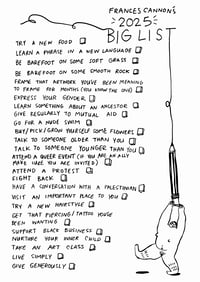 FRANCES CANNON'S
2025
BIG LIST
TRY A NEW FOOD
LEARN A PHRASE IN A NEW LANGUAGE
BE BAREFOOT ON SOME SOFT GRASS
BE BAREFOOT ON SOME SMOOTH ROCK
FRAME THAT ARTWORK YOU'VE BEEN MEANING
TO FRAME FOR MONTHS (YOU KNOW THE ONE)
EXPRESS YOUR GENDER
LEARN SOMETHING ABOUT AN ANCESTOR
GIVE REGULARLY TO MUTUAL AID
GO FOR A NUDE SWIM
BUY/PICK/GROW YOURSELF SOME FLOWERS
TALK TO SOMEONE OLDER THAN YOU
TALK TO SOMEONE YOUNGER THAN YOU
ATTEND A QUEER EVENT (IF YOU ARE AN ALLY
MAKE SURE YOU ARE INVITED)
ATTEND A PROTEST
FIGHT BACK
HAVE A CONVERSATION WITH A PALESTINIAN
VISIT AN IMPORTANT PLACE TO YOU
TRY A NEW HAIRSTYLE
GET THAT PIERCING/TATTOO YOU'VE
BEEN WANTING
SUPPORT BLACK BUSINESS
NURTURE YOUR INNER CHILD
TAKE AN ART CLASS
LIVE SIMPLY
GIVE GENEROUSLY